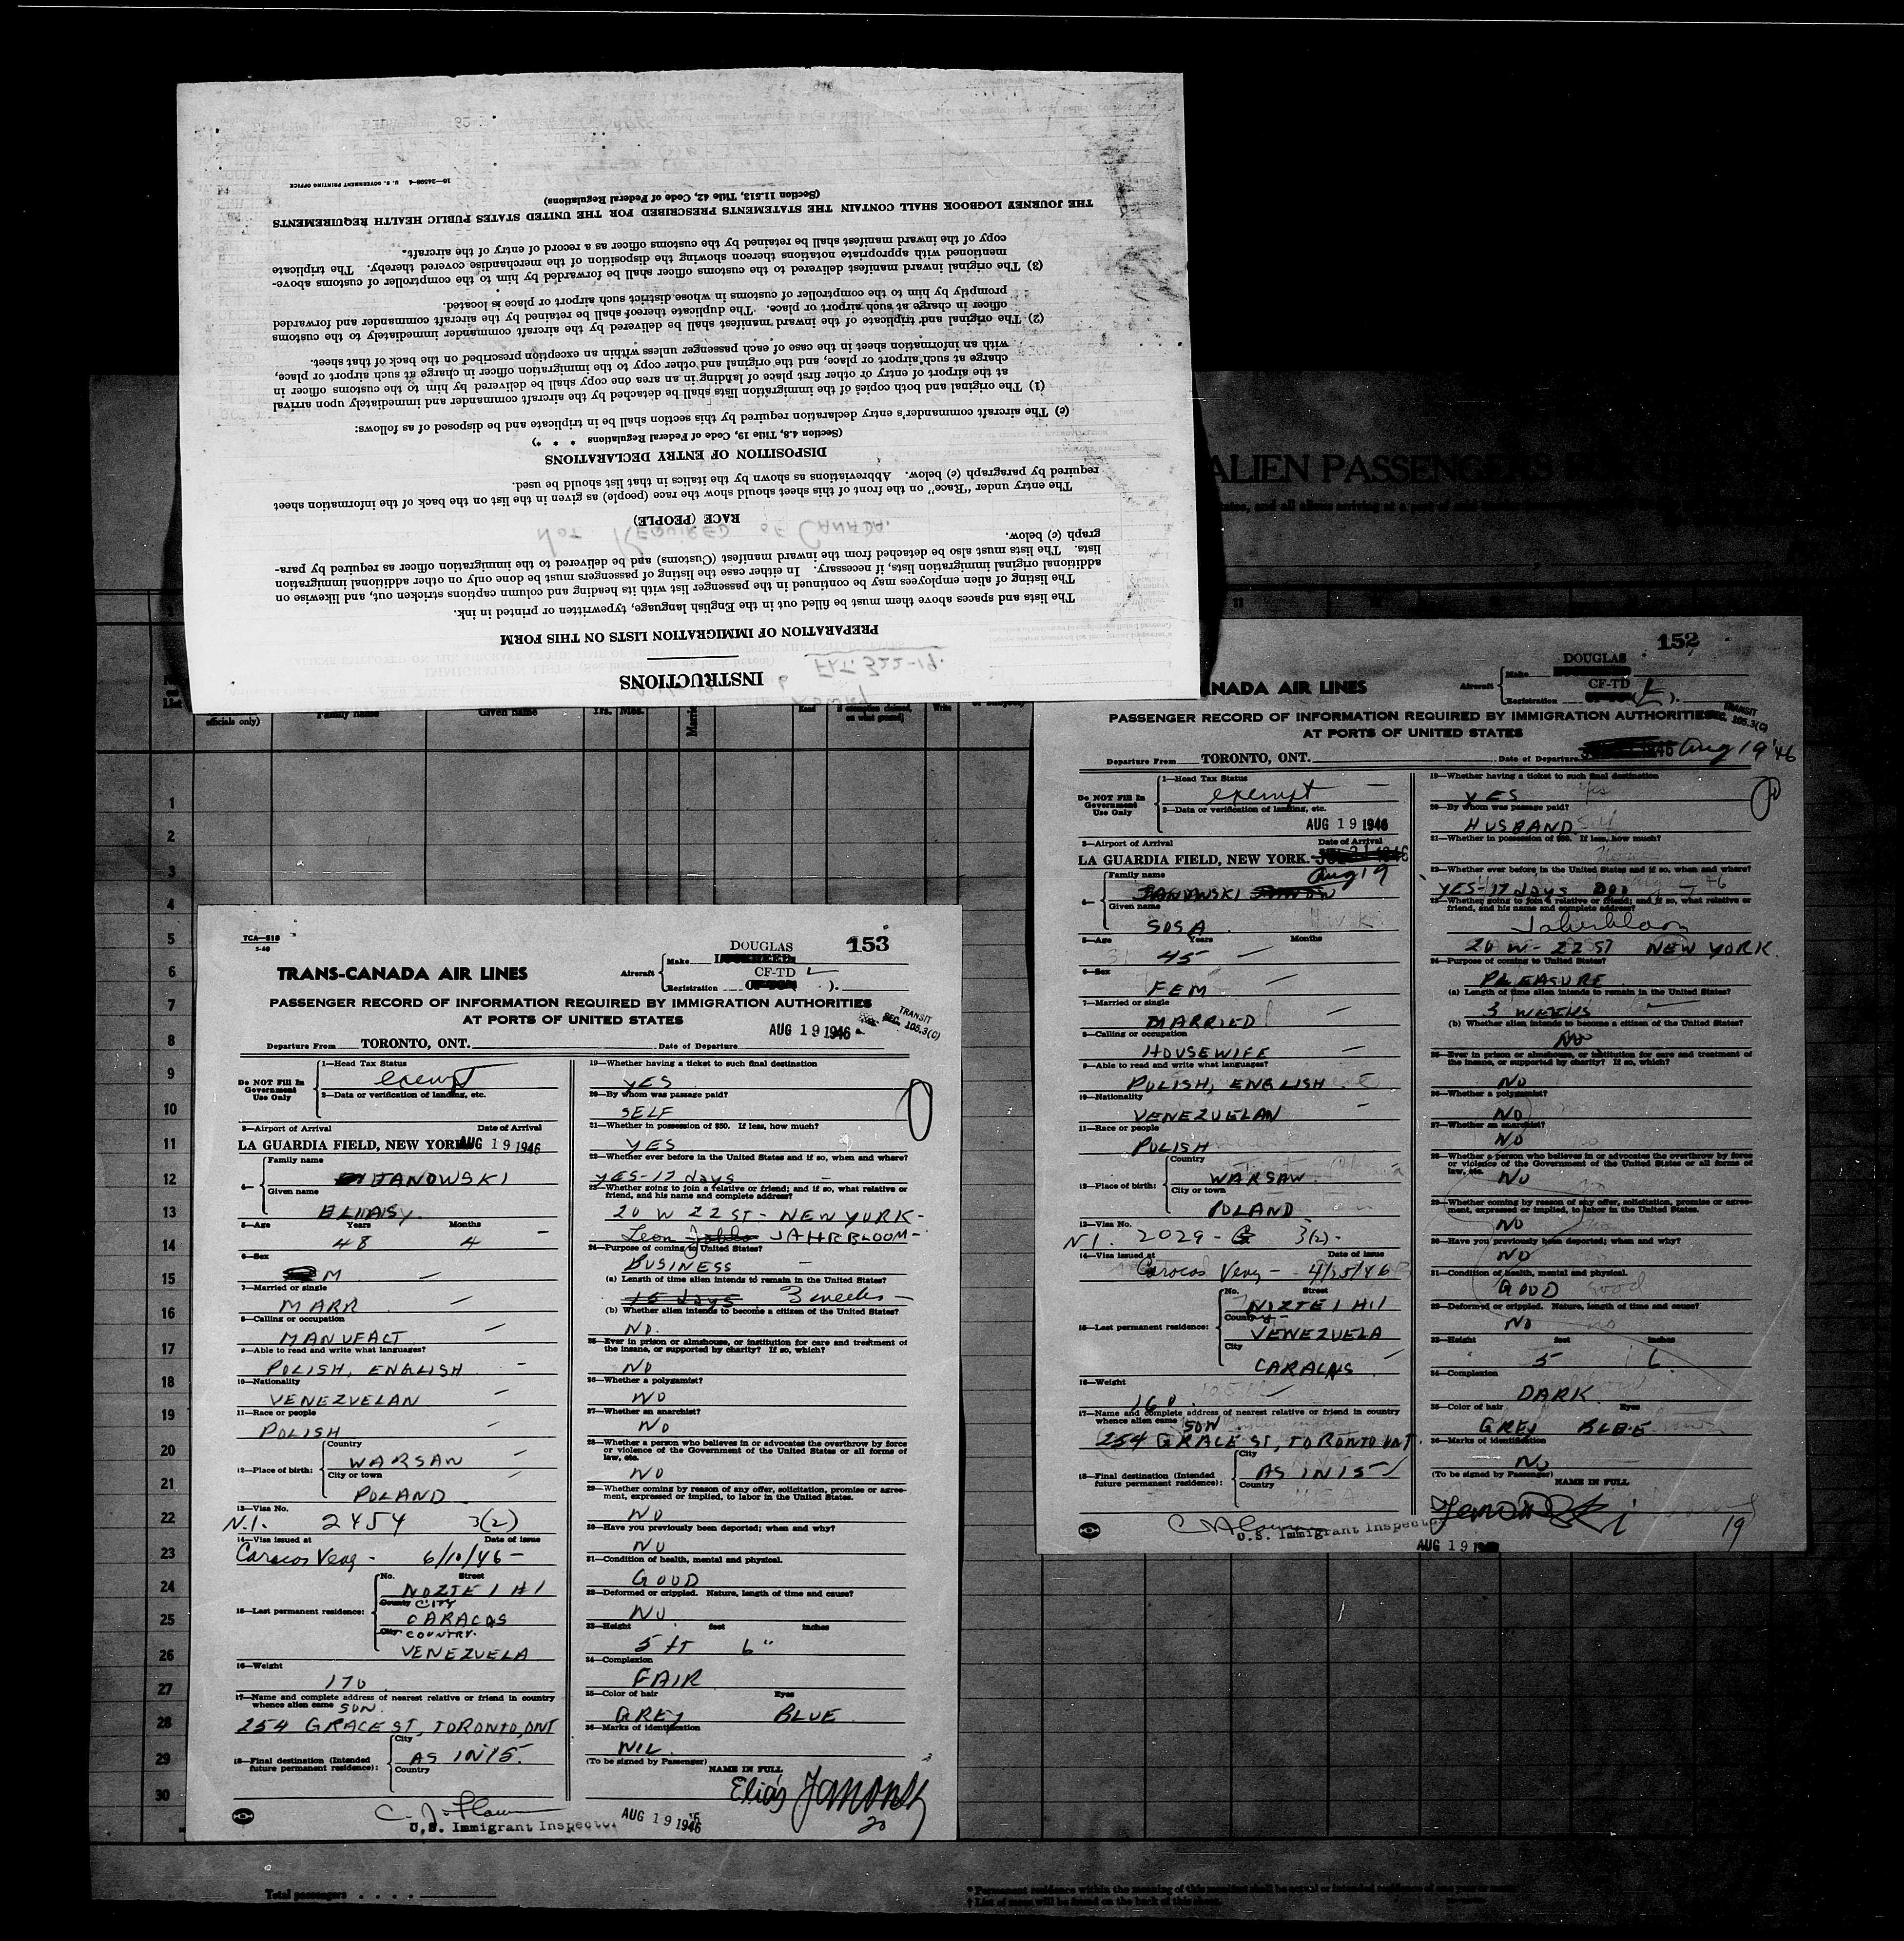 INSTRUCTIONS
PREPARATION OF IMMIGRATION LISTS ON THIS FORM
The lists and spaces above them must be filled out in the English language, typewritten or printed in ink.
The listing of alien employees may be continued in the passenger list with its heading and column captions stricken out, and likewise on
additional original immigration lists, if necessary. In either case the listing of passengers must be done only on other additional immigration
lists. The lists must also be detached from the inward manifest (Customs) and be delivered to the immigration officer as required by para-
graph (c) below.
RACE (PEOPLE)
The entry under "Race" on the front of this sheet should show the race (people) as given in the list on the back of the information sheet
required by paragraph (c) below. Abbreviations as shown by the italics in that list should be used.
DISPOSITION OF ENTRY DECLARATIONS
(Section 4.8, Title 19, Code of Federal Regulations * * *)
(c) The aircraft commander's entry declaration required by this section shall be in triplicate and be disposed of as follows:
(1) The original and both copies of the immigration lists shall be detached by the aircraft commander and immediately upon arrival
at the airport of entry or other first place of landing in an area one copy shall be delivered by him to the customs officer in
charge at such airport or place, and the original and other copy to the immigration officer in charge at such airport or place,
with an information sheet in the case of each passenger unless within an exception prescribed on the back of that sheet.
(2) The original and triplicate of the inward manifest shall be delivered by the aircraft commander immediately to the customs
officer in charge at such airport or place. The duplicate thereof shall be retained by the aircraft commander and forwarded
promptly by him to the comptroller of customs in whose district such airport or place is located.
(3) The original inward manifest delivered to the customs officer shall be forwarded by him to the comptroller of customs above-
mentioned with appropriate notations thereon showing the disposition of the merchandise covered thereby. The triplicate
copy of the inward manifest shall be retained by the customs officer as a record of entry of the aircraft.
THE JOURNEY LOGBOOK SHALL CONTAIN THE STATEMENTS PRESCRIBED FOR THE UNITED STATES PUBLIC HEALTH REQUIREMENTS
(Section 11.513, Title 42, Code of Federal Regulations)
16—24598-4 U. S. GOVERNMENT PRINTING OFFICE
NOT REQUIRED OF CANADA.
FLT. 322-19.
ALIEN PASSENGERS
and all aliens arriving at a port of
11
officials only)
Family name
Given name
Yrs. Mos.
Read
Write
1
2
3
4
5
6
7
8
9
10
11
12
13
14
15
16
17
18
19
20
21
22
23
24
25
26
27
28
29
30
Total passengers
* Permanent residence within the meaning of this manifest shall be actual or intended residence of one year or more.
† List of races will be found on the back of this sheet.
TCA—518
153
TRANS-CANADA AIR LINES
Aircraft
Make DOUGLAS
Registration CF-TD L
PASSENGER RECORD OF INFORMATION REQUIRED BY IMMIGRATION AUTHORITIES
AT PORTS OF UNITED STATES
TRANSIT
SEC. 105.3(C)
Departure From TORONTO, ONT. Date of Departure AUG 19 1946
Do NOT Fill In
Government
Use Only
1—Head Tax Status
exempt
2—Data or verification of landing, etc.
3—Airport of Arrival Date of Arrival
LA GUARDIA FIELD, NEW YORK AUG 19 1946
4— Family name
JANOWSKI
Given name
ELIASY
5—Age Years Months
48 4
6—Sex
M
7—Married or single
MARR
8—Calling or occupation
MANUFACT
9—Able to read and write what languages?
POLISH, ENGLISH
10—Nationality
VENEZUELAN
11—Race or people
POLISH
12—Place of birth:
Country
WARSAW
City or town
POLAND
13—Visa No.
N.I. 2454 3(2)
14—Visa issued at Date of issue
Caracas Venz - 6/10/46 -
15—Last permanent residence:
No. Street
NOZTE 1 H 1
County CITY
CARACAS
City COUNTRY.
VENEZUELA
16—Weight
170
17—Name and complete address of nearest relative or friend in country
whence alien came
SON.
254 GRACE ST, TORONTO, ONT
18—Final destination (Intended
future permanent residence):
City
AS IN 15.
Country
U.S. Immigrant Inspector
19—Whether having a ticket to such final destination
YES
20—By whom was passage paid?
SELF
21—Whether in possession of $50. If less, how much?
YES
22—Whether ever before in the United States and if so, when and where?
YES-17 days
23—Whether going to join a relative or friend; and if so, what relative or
friend, and his name and complete address?
20 W 22 ST - NEW YORK -
Leon JAHRBLOOM -
24—Purpose of coming to United States?
BUSINESS
(a) Length of time alien intends to remain in the United States?
15 days 3 weeks
(b) Whether alien intends to become a citizen of the United States?
NO.
25—Ever in prison or almshouse, or institution for care and treatment of
the insane, or supported by charity? If so, which?
NO
26—Whether a polygamist?
NO
27—Whether an anarchist?
NO
28—Whether a person who believes in or advocates the overthrow by force
or violence of the Government of the United States or all forms of
law, etc.
NO
29—Whether coming by reason of any offer, solicitation, promise or agree-
ment, expressed or implied, to labor in the United States.
NO
30—Have you previously been deported; when and why?
NO
31—Condition of health, mental and physical.
GOOD
32—Deformed or crippled. Nature, length of time and cause?
NO
33—Height feet inches
5 ft 6"
34—Complexion
FAIR
35—Color of hair Eyes
GREY BLUE
36—Marks of identification
NIL
(To be signed by Passenger)
NAME IN FULL
Eliás Janowski
AUG 19 1946
20
152
CANADA AIR LINES
Aircraft
Make DOUGLAS
Registration CF-TD (L).
PASSENGER RECORD OF INFORMATION REQUIRED BY IMMIGRATION AUTHORITIES
AT PORTS OF UNITED STATES
TRANSIT
SEC. 105.3(C)
Departure From TORONTO, ONT. Date of Departure Aug 19 '46
Do NOT Fill In
Government
Use Only
1—Head Tax Status
exempt
2—Data or verification of landing, etc.
AUG 19 1946
3—Airport of Arrival Date of Arrival
LA GUARDIA FIELD, NEW YORK.
Aug 19
4— Family name
JANOWSKI
Given name
SOSA
5—Age Years Months
45
6—Sex
FEM
7—Married or single
MARRIED
8—Calling or occupation
HOUSEWIFE
9—Able to read and write what languages?
POLISH, ENGLISH
10—Nationality
VENEZUELAN
11—Race or people
POLISH
12—Place of birth:
Country
WARSAW
City or town
POLAND
13—Visa No.
N.I. 2029 - 3(2)-
14—Visa issued at Date of issue
Caracas Venz - 4/25/46
15—Last permanent residence:
No. Street
NOZTE 1 H.1
County
VENEZUELA
City
CARACAS
16—Weight
160
17—Name and complete address of nearest relative or friend in country
whence alien came
SON
254 GRACE ST, TORONTO ONT.
18—Final destination (Intended
future permanent residence):
City
AS IN 15
Country
U.S. Immigrant Inspector
19—Whether having a ticket to such final destination
YES
20—By whom was passage paid?
HUSBAND
21—Whether in possession of $50. If less, how much?
22—Whether ever before in the United States and if so, when and where?
YES-17 days
23—Whether going to join a relative or friend; and if so, what relative or
friend, and his name and complete address?
20 W- 22 ST NEW YORK.
24—Purpose of coming to United States?
PLEASURE
(a) Length of time alien intends to remain in the United States?
3 WEEKS
(b) Whether alien intends to become a citizen of the United States?
NO
25—Ever in prison or almshouse, or institution for care and treatment of
the insane, or supported by charity? If so, which?
NO
26—Whether a polygamist?
NO
27—Whether an anarchist?
NO
28—Whether a person who believes in or advocates the overthrow by force
or violence of the Government of the United States or all forms of
law, etc.
NO
29—Whether coming by reason of any offer, solicitation, promise or agree-
ment, expressed or implied, to labor in the United States.
NO
30—Have you previously been deported; when and why?
NO
31—Condition of health, mental and physical.
GOOD
32—Deformed or crippled. Nature, length of time and cause?
NO
33—Height feet inches
5 6
34—Complexion
DARK
35—Color of hair Eyes
GREY BLUE
36—Marks of identification
NO
(To be signed by Passenger)
NAME IN FULL
19
AUG 19